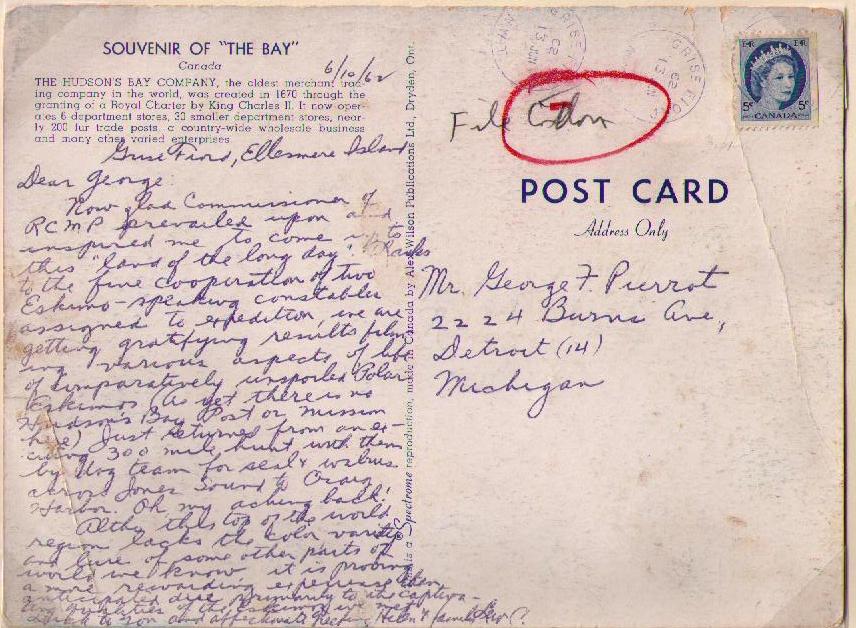 SOUVENIR OF "THE BAY"
Canada
6/10/62
THE HUDSON'S BAY COMPANY, the oldest merchant trad-
ing company in the world, was created in 1670 through the
granting of a Royal Charter by King Charles II. It now oper-
ates 6 department stores, 30 smaller department stores, near-
ly 200 fur trade posts, a country-wide wholesale business
and many other varied enterprises.
Grise Fiord, Ellesmere Island
Dear George:
Now glad Commissioner of
RCMP prevailed upon and
inspired me to come up to
this "land of the long day". Thanks
to the fine cooperation of two
Eskimo-speaking constables
assigned to expedition, we are
getting gratifying results film-
ing various aspects of life
of comparatively unspoiled Polar
Eskimos (as yet there is no
Hudson's Bay Post or mission
here) Just returned from an ex-
citing 300 mile hunt with them
by dog team for seal & walrus
across Jones Sound to Craig
Harbor. Oh, my aching back!
Altho this top of the world
region lacks the color variety
and lure of some other parts of
world we know it is proving
a more rewarding experience than
anticipated due primarily to the captiva-
ting qualities of the Eskimos we meet
Luck to you and affectionate greeting Helen &
a Spectrome reproduction, made in Canada by Alex Wilson Publications Ltd., Dryden, Ont.
GRISE FIORD
13 JUN
62
GRISE FIORD
13
62
E II R
E II R
5c
5c
CANADA
File
7
POST CARD
Address Only
Mr. George F. Pierrot
2224 Burns Ave,
Detroit (14)
Michigan